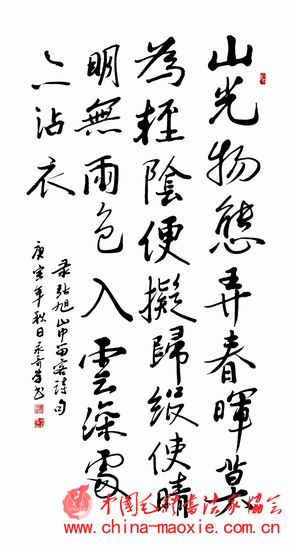 山光物態弄春暉莫
為輕陰便擬歸縱使晴
明無雨色入雲深處
亦沾衣
录張旭山中留客詩句
庚寅年秋日
中国毛书法家協会
www.china-maoxie.com